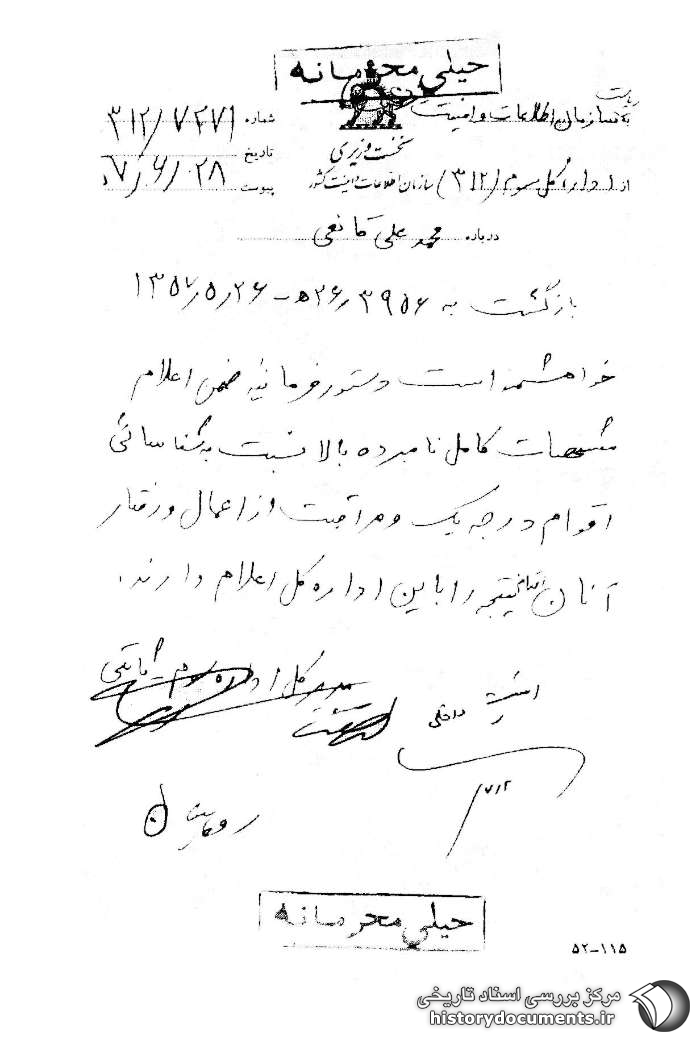 خیلی محرمانه
به سازمان اطلاعات و امنیت
شماره ۳۱۲/۷۲۷۱
نخست وزیری
تاریخ
از اداره کل سوم (۳۱۲) سازمان اطلاعات و امنیت کشور
پیوست
درباره محمد علی
بازگشت به ۳۹۵۶/ه۲۶-۱۳۵۷/۵/۲۶
خواهشمند است دستور فرمائید ضمن اعلام
مشخصات کامل نامبرده بالا نسبت به شناسائی
اقوام درجه یک و مراقبت از اعمال و رفتار
آنان نتیجه را باین اداره کل اعلام دارند.
مدیر کل اداره سوم
امنیت داخلی
۷/۲
خیلی محرمانه
۵۲-۱۱۵
مرکز بررسی اسناد تاریخی
historydocuments.ir